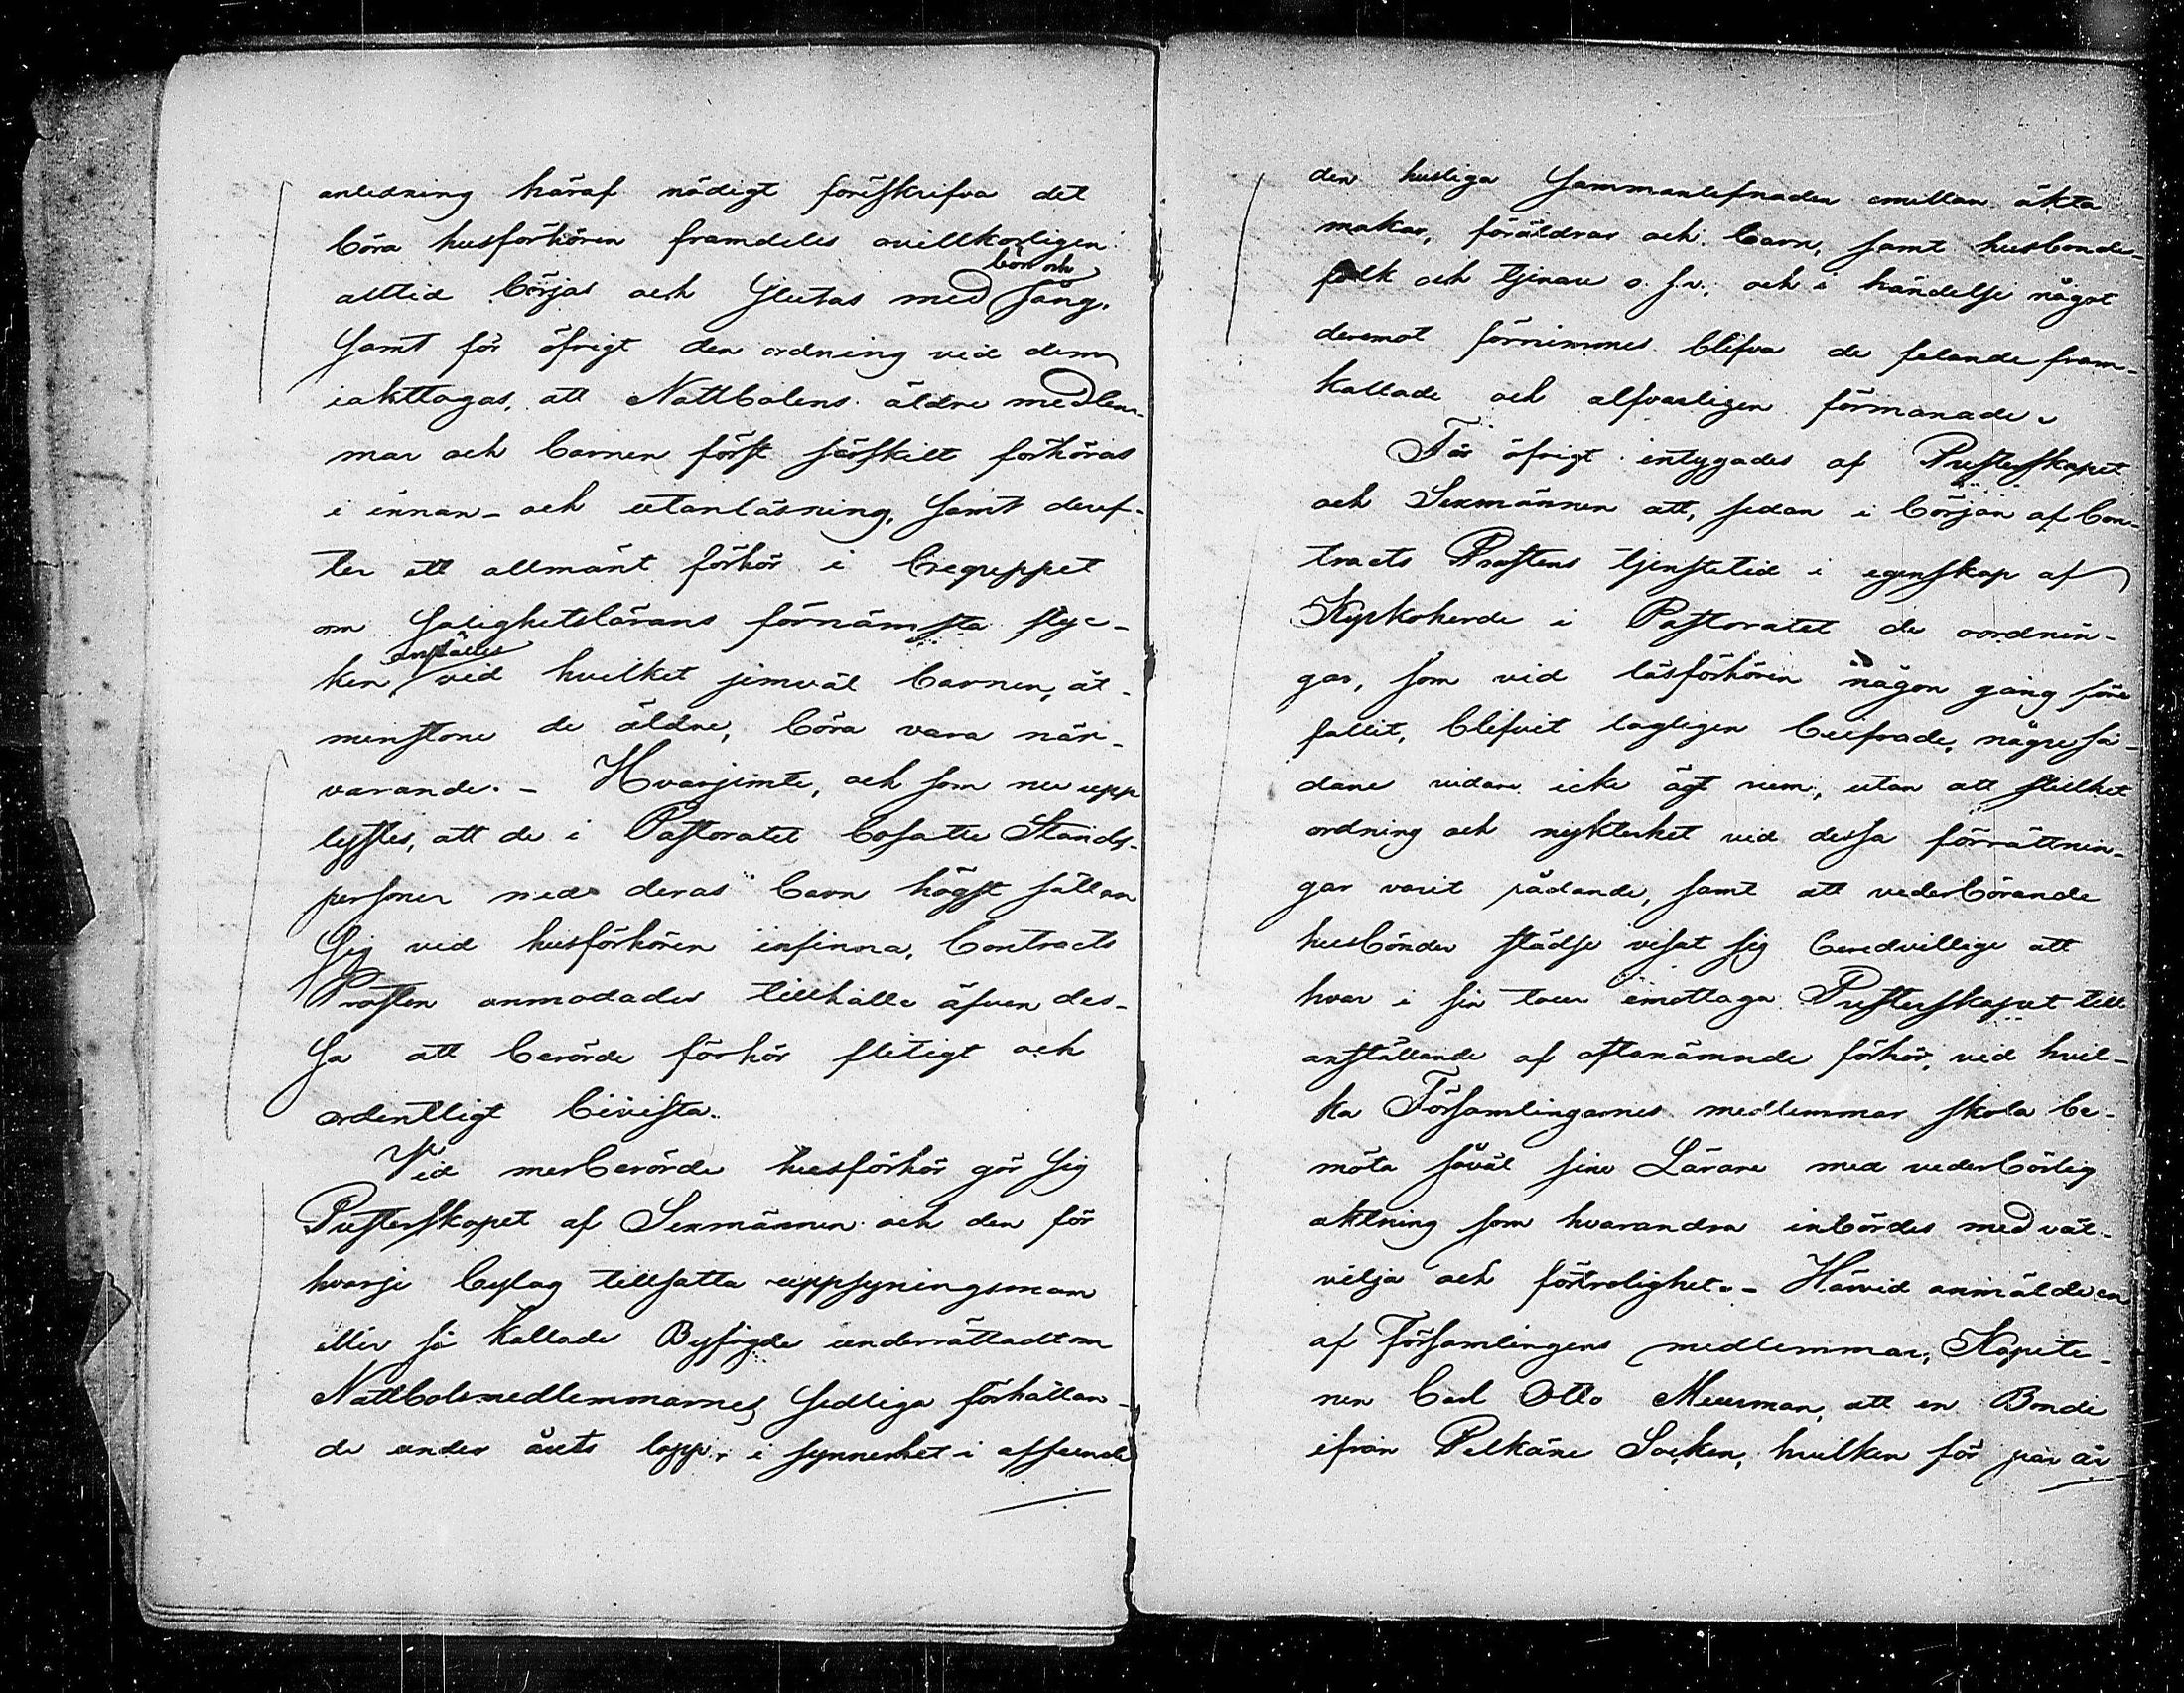 anledning häraf nödigt föreskrifva det
böra husförhören framdeles ovillkorligen
alltid börjas och slutas med bön och sång,
samt för öfrigt den ordning vid dem
iakttagas, att Nattbolens äldre medlem-
mar och barnen först särskilt förhöras
i innan- och utanläsning, samt deref-
ter ett allmänt förhör i begreppet
om salighetslärans förnämsta styc-
ken anställes vid hvilket jemväl barnen, åt-
minstone de äldre, böra vara när-
varande. - Hvarjemte, och som nu upp
lystes, att de i Pastoratet bosatte Stånds-
personer med deras barn högst sällan
sig vid husförhören infinna, Contracts
Prosten anmodades tillhålla äfven des-
sa att berörde förhör flitigt och
ordentligt bevista.
Vid merberörde husförhör gör sig
Presterskapet af Sexmännen och den för
hvarje bylag tillsatta uppsyningsman
eller så kallade Byfogde underrättadt om
Nattbolsmedlemmarnes sedliga förhållan-
de under årets lopp, i synnerhet i afseende
den husliga sammanlefnaden emillan äkta
makar, föräldrar och barn, samt husbonde-
folk och tjenare o. s. v., och i händelse något
deremot förnimmes blifva de felande fram-
kallade och alfvarligen förmanade.
För öfrigt intygades af Presterskapet
och Sexmännen att, sedan i början af Con-
tracts Prostens tjenstetid i egenskap af
Kyrkoherde i Pastoratet de oordnin-
gar, som vid läsförhören någon gång före
fallit, blifvit lagligen beifrade, någre så-
dane vidare icke ägt rum, utan att stillhet
ordning och nykterhet vid dessa förrättnin-
gar varit rådande, samt att vederbörande
husbönder städse visat sig beredvillige att
hvar i sin tour emottaga Presterskapet till
anställande af oftanämnde förhör, vid hvil-
ka Församlingarnes medlemmar skola be-
möta såväl sine Lärare med vederbörlig
aktning som hvarandra inbördes med väl-
vilja och förtrolighet. - Härvid anmälde en
af Församlingens medlemmar, Kapite-
nen Carl Otto Meurman, att en Bonde
ifrån Pelkäne Socken, hvilken för par år